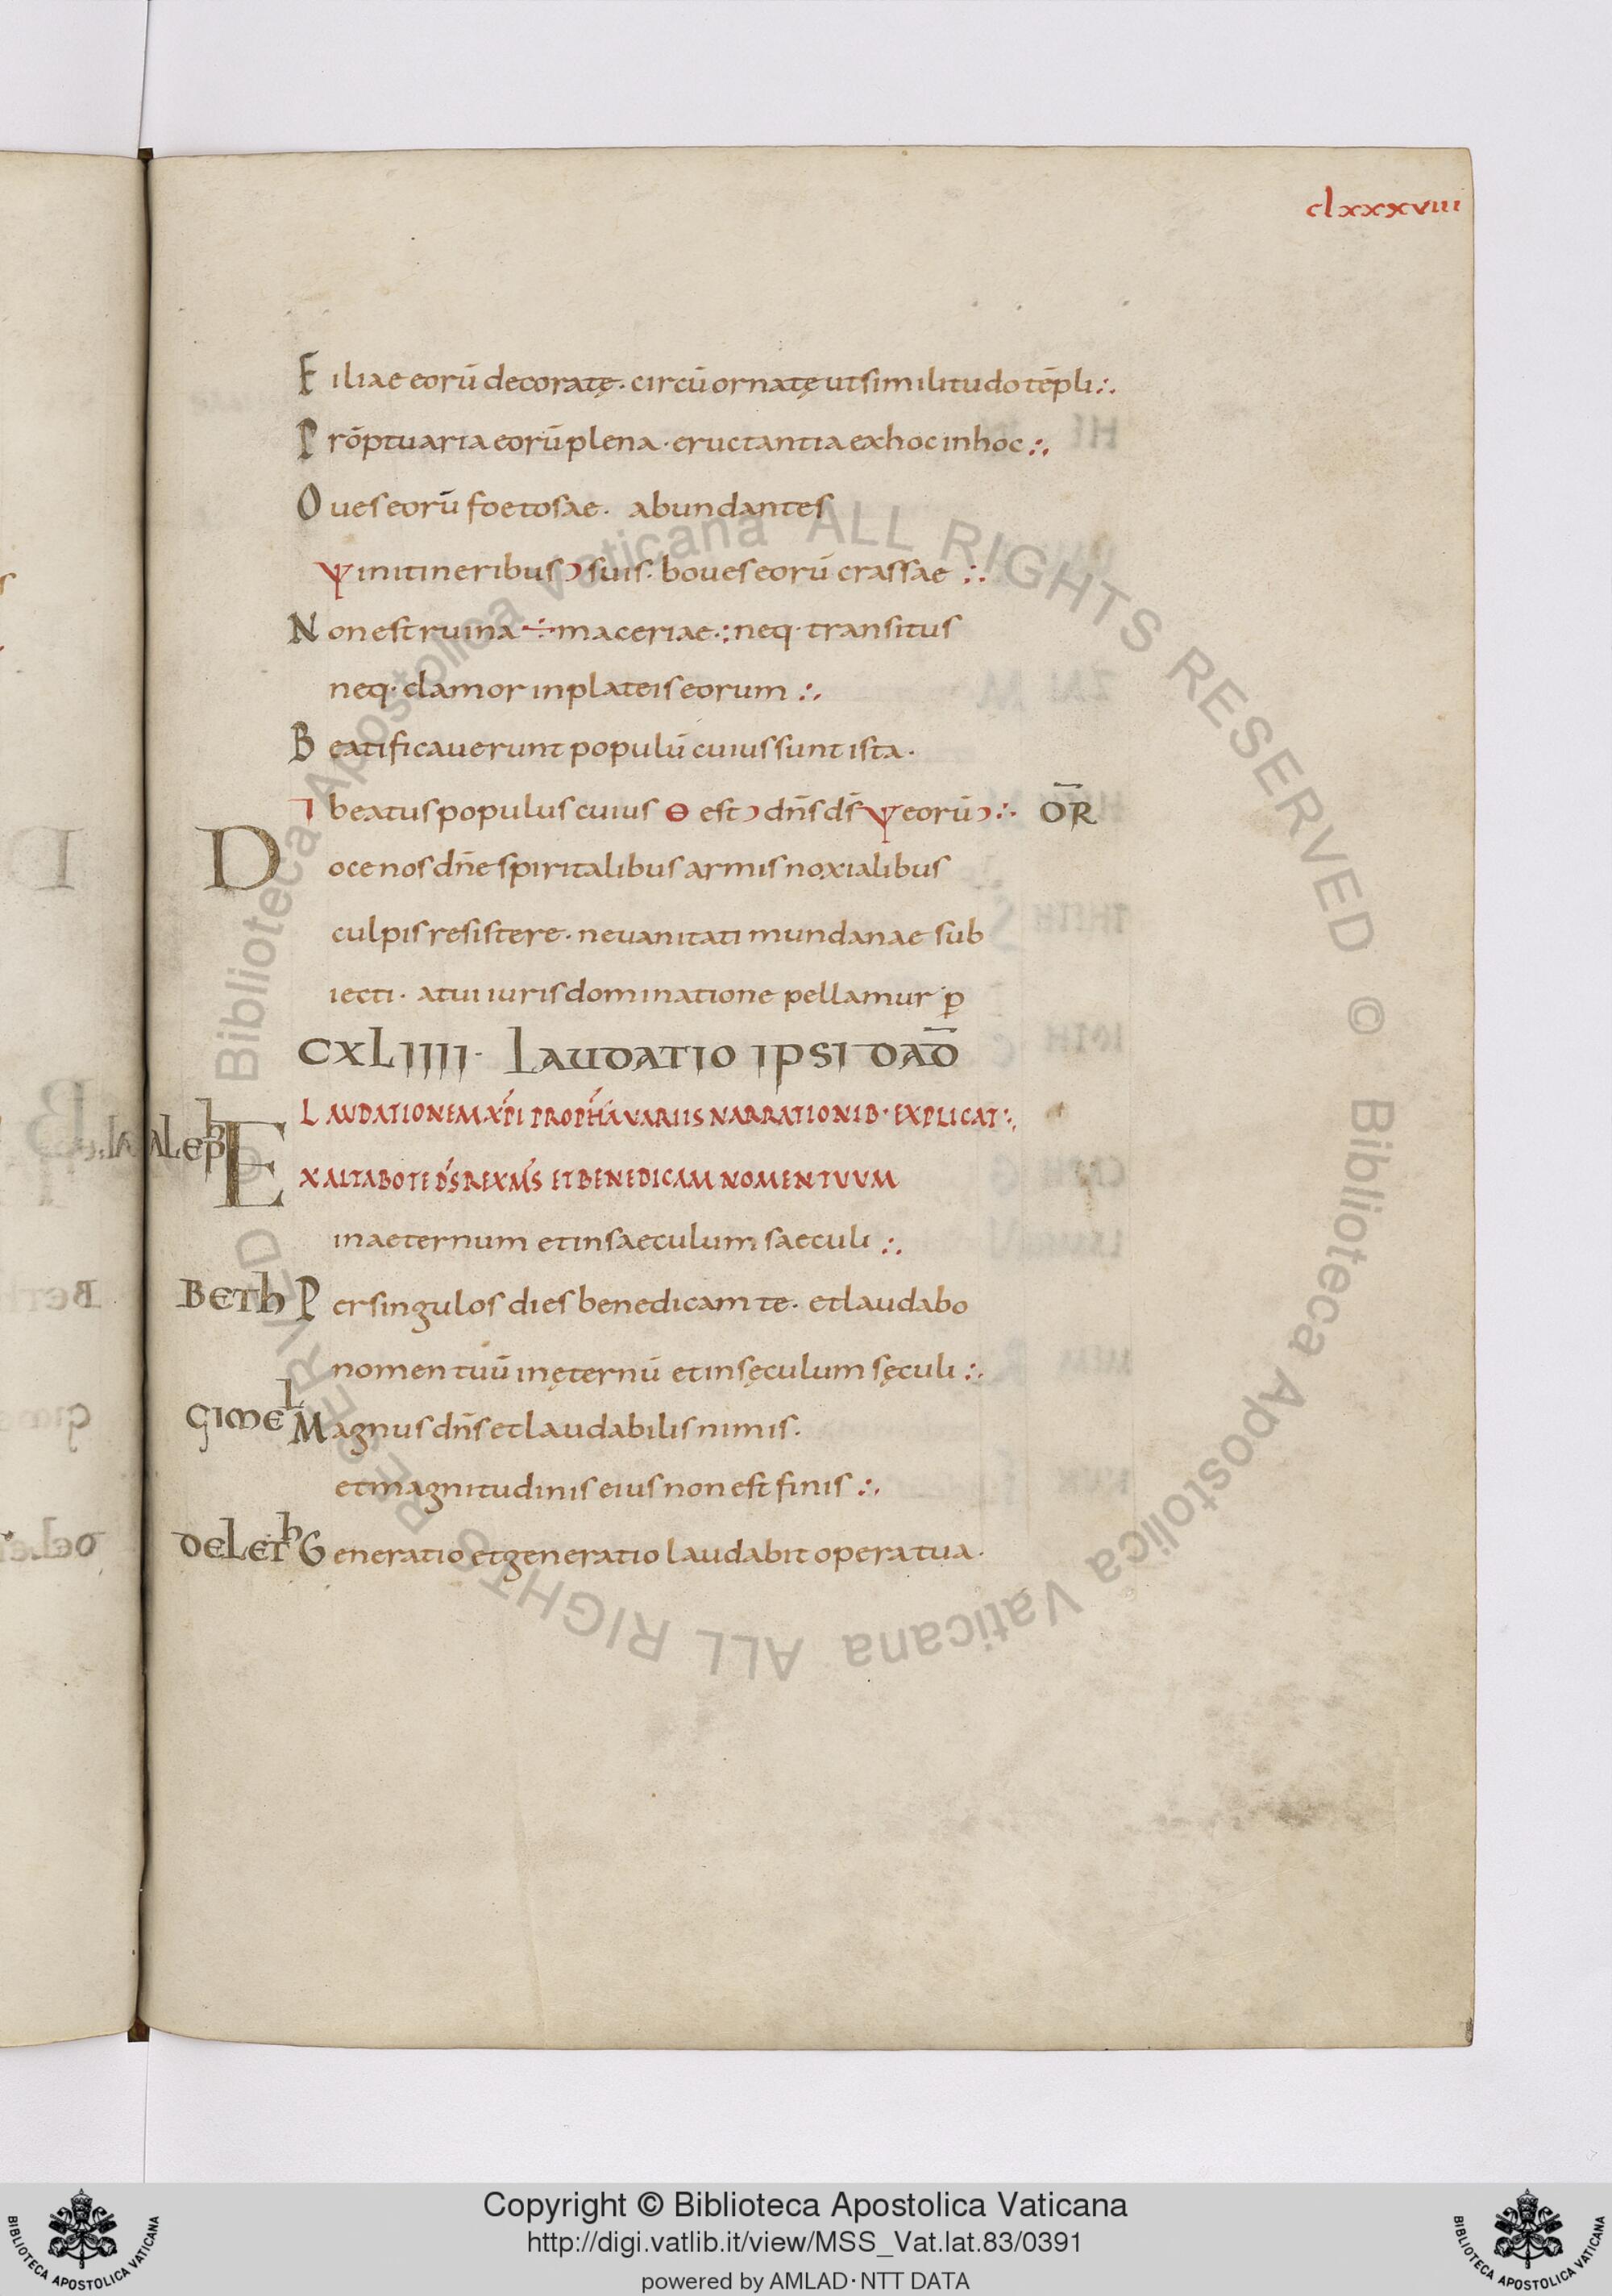 clxxxviii
Filiae eorū decoratę· circū ornatę ut similitudo tēpli :·
Prōptuaria eorū plena· eructantia ex hoc in hoc :·
Oues eorū foetosae· abundantes
ψ in itineribus ͻ suis· boues eorū crassae :·
Non est ruina ÷ maceriae : neq· transitus
neq· clamor in plateis eorum :·
Beatificauerunt populū cuius sunt ista·
beatus populus cuius θ est ͻ dn̄s ds̄ ψ eorū ͻ :· OR̄
Doce nos dn̄e spiritalibus armis noxialibus
culpis resistere· ne uanitati mundanae sub
iecti· a tui iuris dominatione pellamur p̲
CXLIIII· LAUDATIO IPSI DAD̄
LAUDATIONEM XP̄I PROPH̄A VARIIS NARRATIONIB· EXPLICAT :·
Aleph EXALTABO TE D̄S REX M̄S ET BENEDICAM NOMEN TUUM
in aeternum et in saeculum saeculi :·
Beth Per singulos dies benedicam te· et laudabo
nomen tuū in ęternū et in sęculum sęculi :·
Gimel Magnus dn̄s et laudabilis nimis·
et magnitudinis eius non est finis :·
Deleth Generatio et generatio laudabit opera tua·
© Biblioteca Apostolica Vaticana ALL RIGHTS RESERVED © Biblioteca Apostolica Vaticana ALL RIGHTS RESERVED
Copyright © Biblioteca Apostolica Vaticana
http://digi.vatlib.it/view/MSS_Vat.lat.83/0391
powered by AMLAD·NTT DATA
BIBLIOTECA APOSTOLICA VATICANA
BIBLIOTECA APOSTOLICA VATICANA